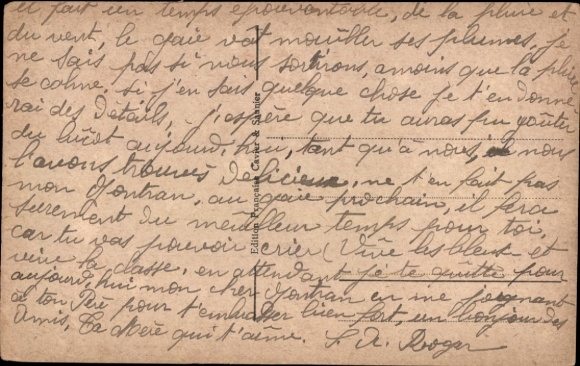 il fait un temps épouvantable, de la pluie et
du vent, le gaie vat mouiller ses plumes, je
ne sais pas si nous sortirons, amoins que la pluie
se calme. si j'en sais quelque chose je t'en donne
rai des détails, j'espère que tu auras pu goûter
du aujourd'hui, tant qu'à nous, nous
l'avons trouvés délicieux, ne t'en fait pas
mon Gontran, au gaie prochain, il fera
surement du meilleur temps pour toi,
car tu vas pouvoir crier (Vive les bleus et
vive la classe, en attendant je te quitte pour
aujourd'hui mon cher Gontran en me joignant
à ton Père pour t'embrasser bien fort, un bonjour des
Amis, Ta Mère qui t'aime. Roger
Edition Française Cavier & Saunier